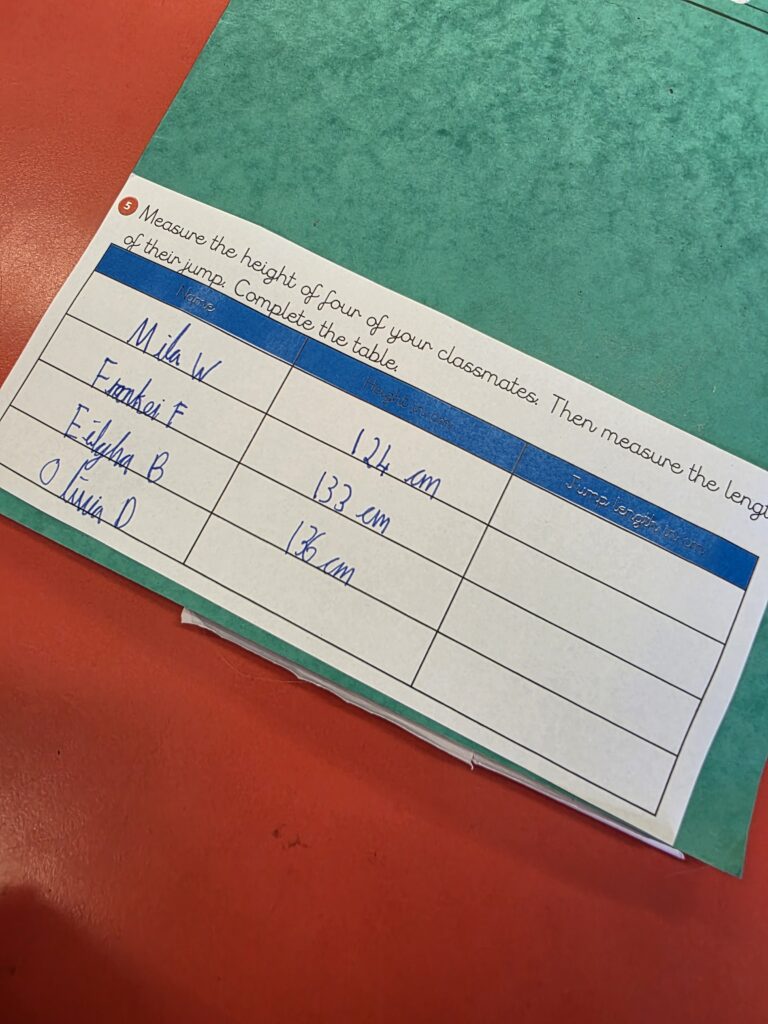 5 Measure the height of four of your classmates. Then measure the lengt
of their jump. Complete the table.
Name Height in cm Jump length in cm
Mila W 124 cm
Frankei F 133 cm
Eilgha B 136 cm
Olivia D